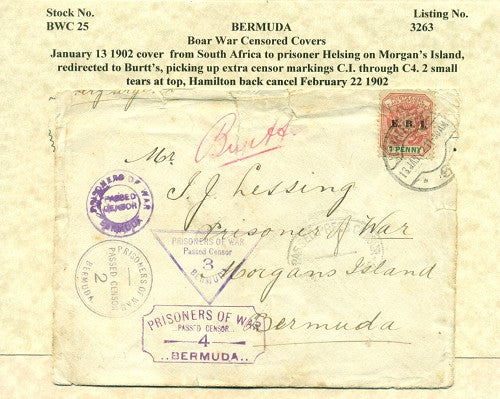 Stock No.
BWC 25
BERMUDA
Listing No.
3263
Boar War Censored Covers
January 13 1902 cover from South Africa to prisoner Helsing on Morgan's Island,
redirected to Burtt's, picking up extra censor markings C.I. through C4. 2 small
tears at top, Hamilton back cancel February 22 1902
Burtt
E. R. I.
1 PENNY
Mr
S. J. Lessing
Prisoner of War
Morgans Island
Bermuda
PRISONERS OF WAR
PASSED
CENSOR
BERMUDA
PRISONERS OF WAR
Passed Censor
3
BERMUDA
PRISONERS OF WAR
PASSED CENSOR
2
BERMUDA
PRISONERS OF WAR
PASSED CENSOR
4
..BERMUDA..